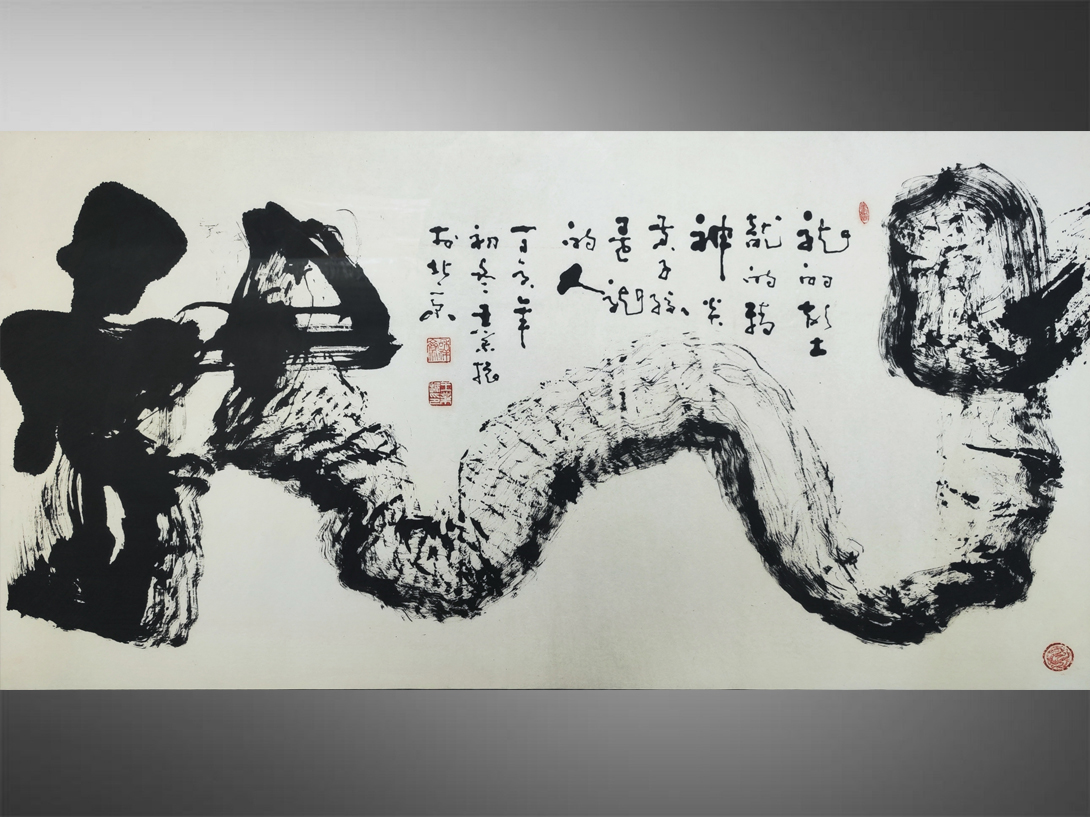 龙的故土
龍的精
神炎
黄子孫
是龍
的人
丁亥年
初冬王
於北京